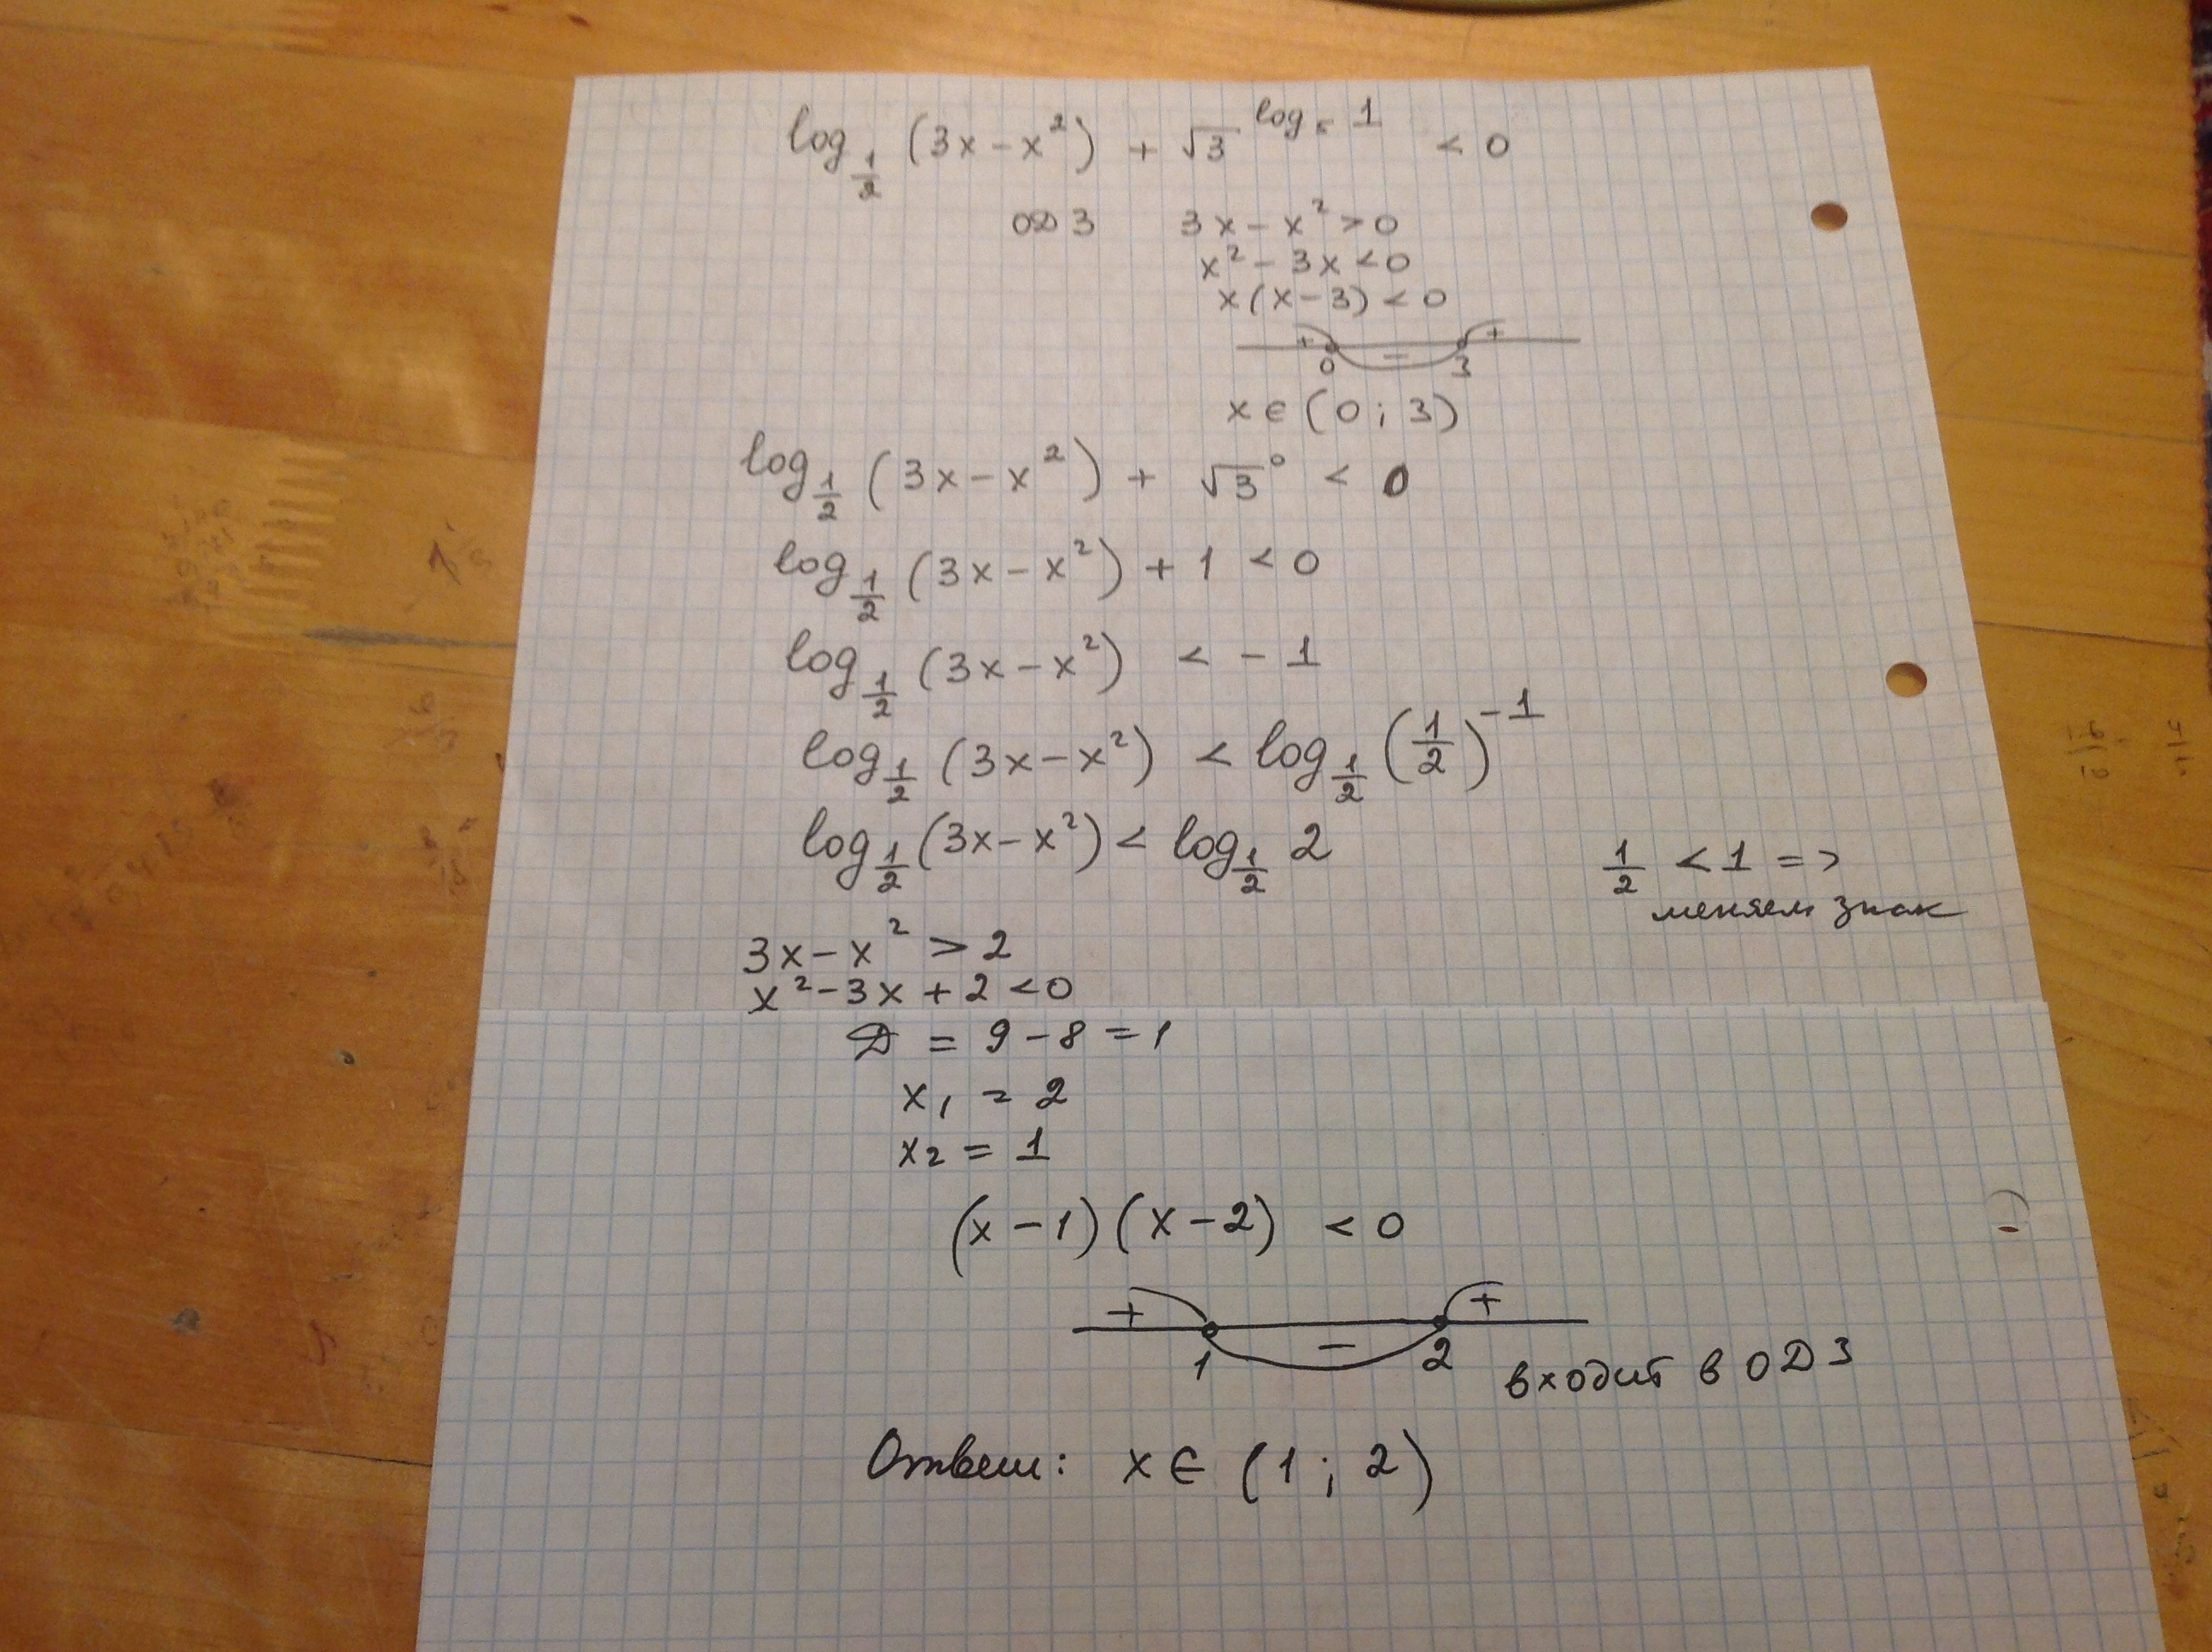 log_{1/2} (3x - x²) + √3^{log₅ 1} < 0
ОДЗ 3x - x² > 0
x² - 3x < 0
x(x - 3) < 0
+ - +
0 3
x ∈ (0 ; 3)
log_{1/2} (3x - x²) + √3⁰ < 0
log_{1/2} (3x - x²) + 1 < 0
log_{1/2} (3x - x²) < - 1
log_{1/2} (3x - x²) < log_{1/2} (1/2)⁻¹
log_{1/2} (3x - x²) < log_{1/2} 2
1/2 < 1 =>
меняем знак
3x - x² > 2
x² - 3x + 2 < 0
Д = 9 - 8 = 1
x₁ = 2
x₂ = 1
(x - 1) (x - 2) < 0
+ - +
1 2
входит в ОДЗ
Ответ: x ∈ (1 ; 2)